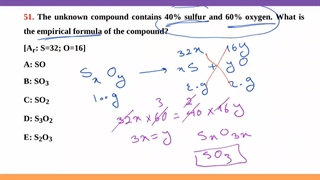 51. The unknown compound contains 40% sulfur and 60% oxygen. What is
the empirical formula of the compound?
[Ar: S=32; O=16]
A: SO
B: SO3
C: SO2
D: S3O2
E: S2O3
SxOy → xS + yO
32x 16y
100g
3 2
32x × 60 = 40 × 16y
3x = y
SxO3x
SO3